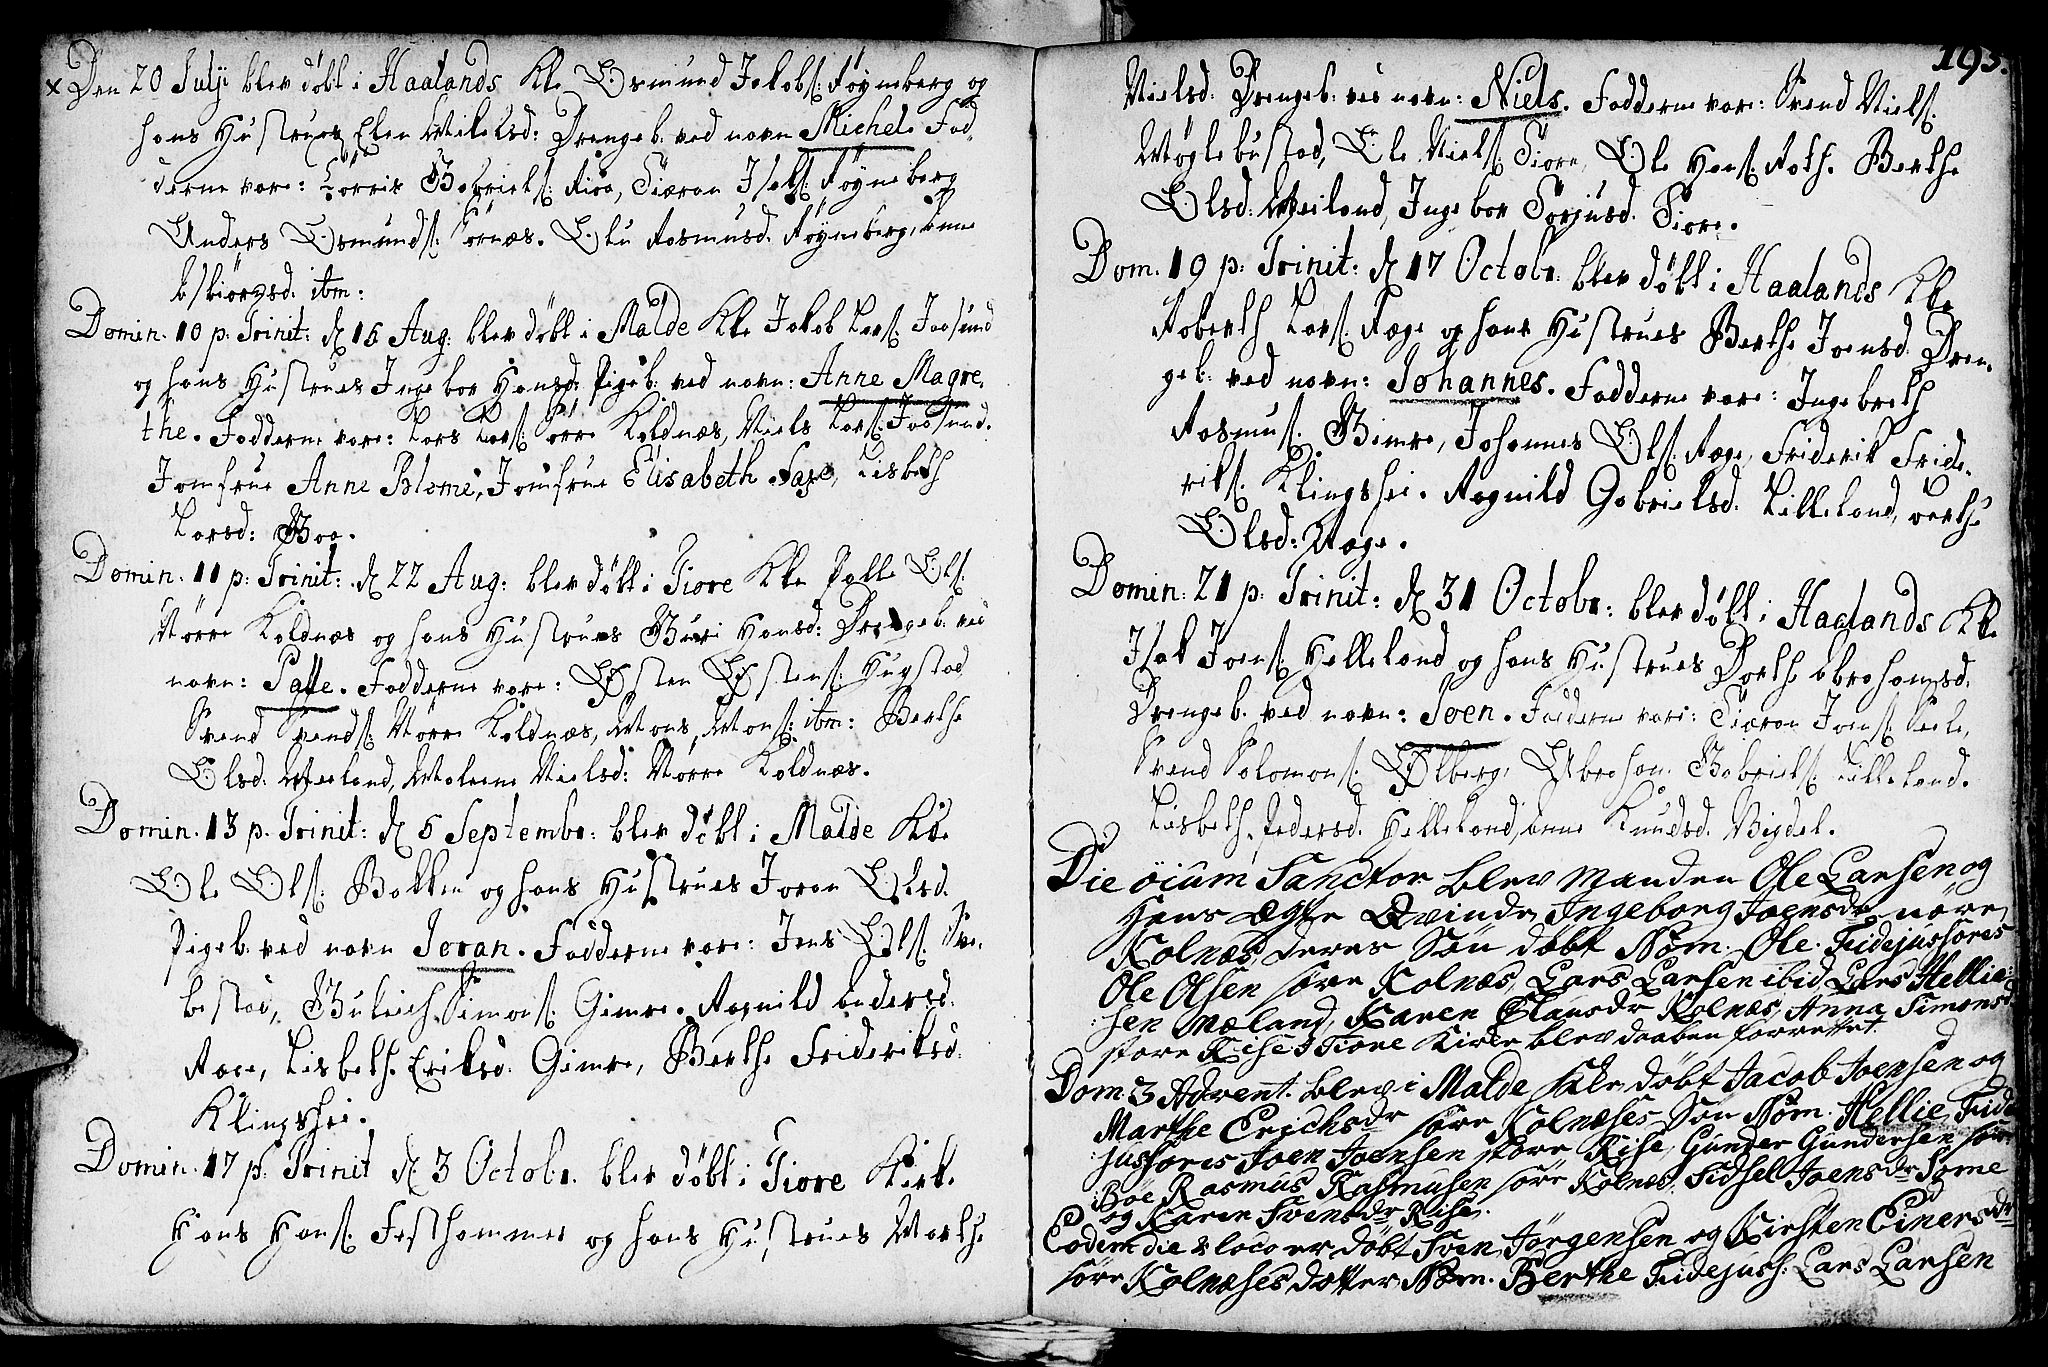 x Den 20 Julji blev døbt i Haalands Kke Osmund Jakobs: Føyneberg og
hans Hustrues Elen Mikelsd: Drengeb. ved navn Michel. Fad-
derne vare: Lorris Gabriels: Risa, Tiæran Isaks: Føyneberg
Anders Osmunds: Sørnæs. Olu Rasmusd. Føyneberg, Anne
Esbiørnsd. ibm:
Domin. 10 p. Trinit: d 15 Aug: blev døbt i Malde Kke Jakob Lars: Joasund
og hans Hustrues Ingebor Hansd. Pigeb. ved navn: Anne Magre-
the. Fadderne vare: Lars Lars: Sørre Koldnæs, Niels Lars: Joasund.
Jomfrue Anne Blome, Jomfrue Elisabeth Saxe, Lisbeth
Larsd: Boe.
Domin. 11 p: Trinit: d 22 Aug: blev døbt i Tiore Kke Palle Ols:
Nørre Koldnæs og hans Hustrues Guri Hansd: Drengeb. ved
navn: Palle. Fadderne vare: Østen Østens: Hugstad
Svend Svends: Nørre Koldnæs, Mons Mons: ibm: Berthe
Olsd. Meeland, Malene Nielsd: Nørre Koldnæs.
Domin. 13 p. Trinit: d 5 Septembr: blev døbt i Malde Kke
Ole Ols: Bakken og hans Hustrues Joran Olsd.
Pigeb. ved navn Joran. Fadderne vare: Jens Ols: Sve-
bestad, Guleich Simons: Gimre. Ragnild Andersd.
Røge, Lisbeth Eriksd. Gimre, Berthe Frideriksd.
Klingshei.
Domin. 17 p. Trinit d 3 Octobr. blev døbt i Tiore Kirke
Hans Hans: Festhammer og hans Hustrues Marthe
193.
Nielsd. Drengeb. ved navn: Niels. Fadderne vare: Svend Niels:
Møglebustad, Ole Niels: Tiora, Ole Hans: Roth. Berthe
Olsd. Meeland, Ingebor Torjusd. Tiore.
Dom. 19 p: Trinit: d 17 Octobr: blev døbt i Haalands Kke
Roberth Lars: Røge og hans Hustrues Berthe Joensd. Dren-
geb. ved navn: Johannes. Fadderne vare: Ingebreth
Rasmus: Gimre, Johannes Ols: Røge, Friderik Fride-
riks: Klingshei. Ragnild Gabrielsd. Lilleland, Berthe
Olsd: Røge.
Domin: 21 p. Trinit: d 31 Octobr: blev døbt i Haalands Kke
Isak Joens: Helleland og hans Hustrues Dorthe Abrahamsd.
Drengeb. ved navn: Joen. Fadderne vare: Tiæran Joens: Sele,
Svend Salomons: Ølberg, Abraham Gabriels: Lilleland.
Lisbeth Pedersd. Helleland, Anne Knudsd. Vigdel.
Die oium Sanctor blev Manden Ole Larsen og
Hans ægte Qvinde Ingeborg Joensdr nøre
Kolnæs deres Søn døbt Nom. Ole. Fidejussores
Ole Olsen søre Kolnæs, Lars Larsen ibid, Lars Hellie-
sen Mæland, Karen Clausdr Kolnæs, Anna Simonsd
store Rise I Tiore Kirke blev daaben forrettet.
Dom. 3 Advent. blev i Malde Kke døbt Jacob Joensen og
Marthe Erichsdr søre Kolnæses Søn Nom. Hellie, Fide-
jussores Joen Joensen store Rise, Gunder Gundersen søre
Bøe Rasmus Rasmusen søre Kolnæs. Sidsel Joensdr Some
og Karen Svensdr Rise.
Eodem die & loco er døbt Sven Jørgensen og Kirsten Einersdr
søre Kolnæses datter Nom. Berthe Fidejuss: Lars Larsen